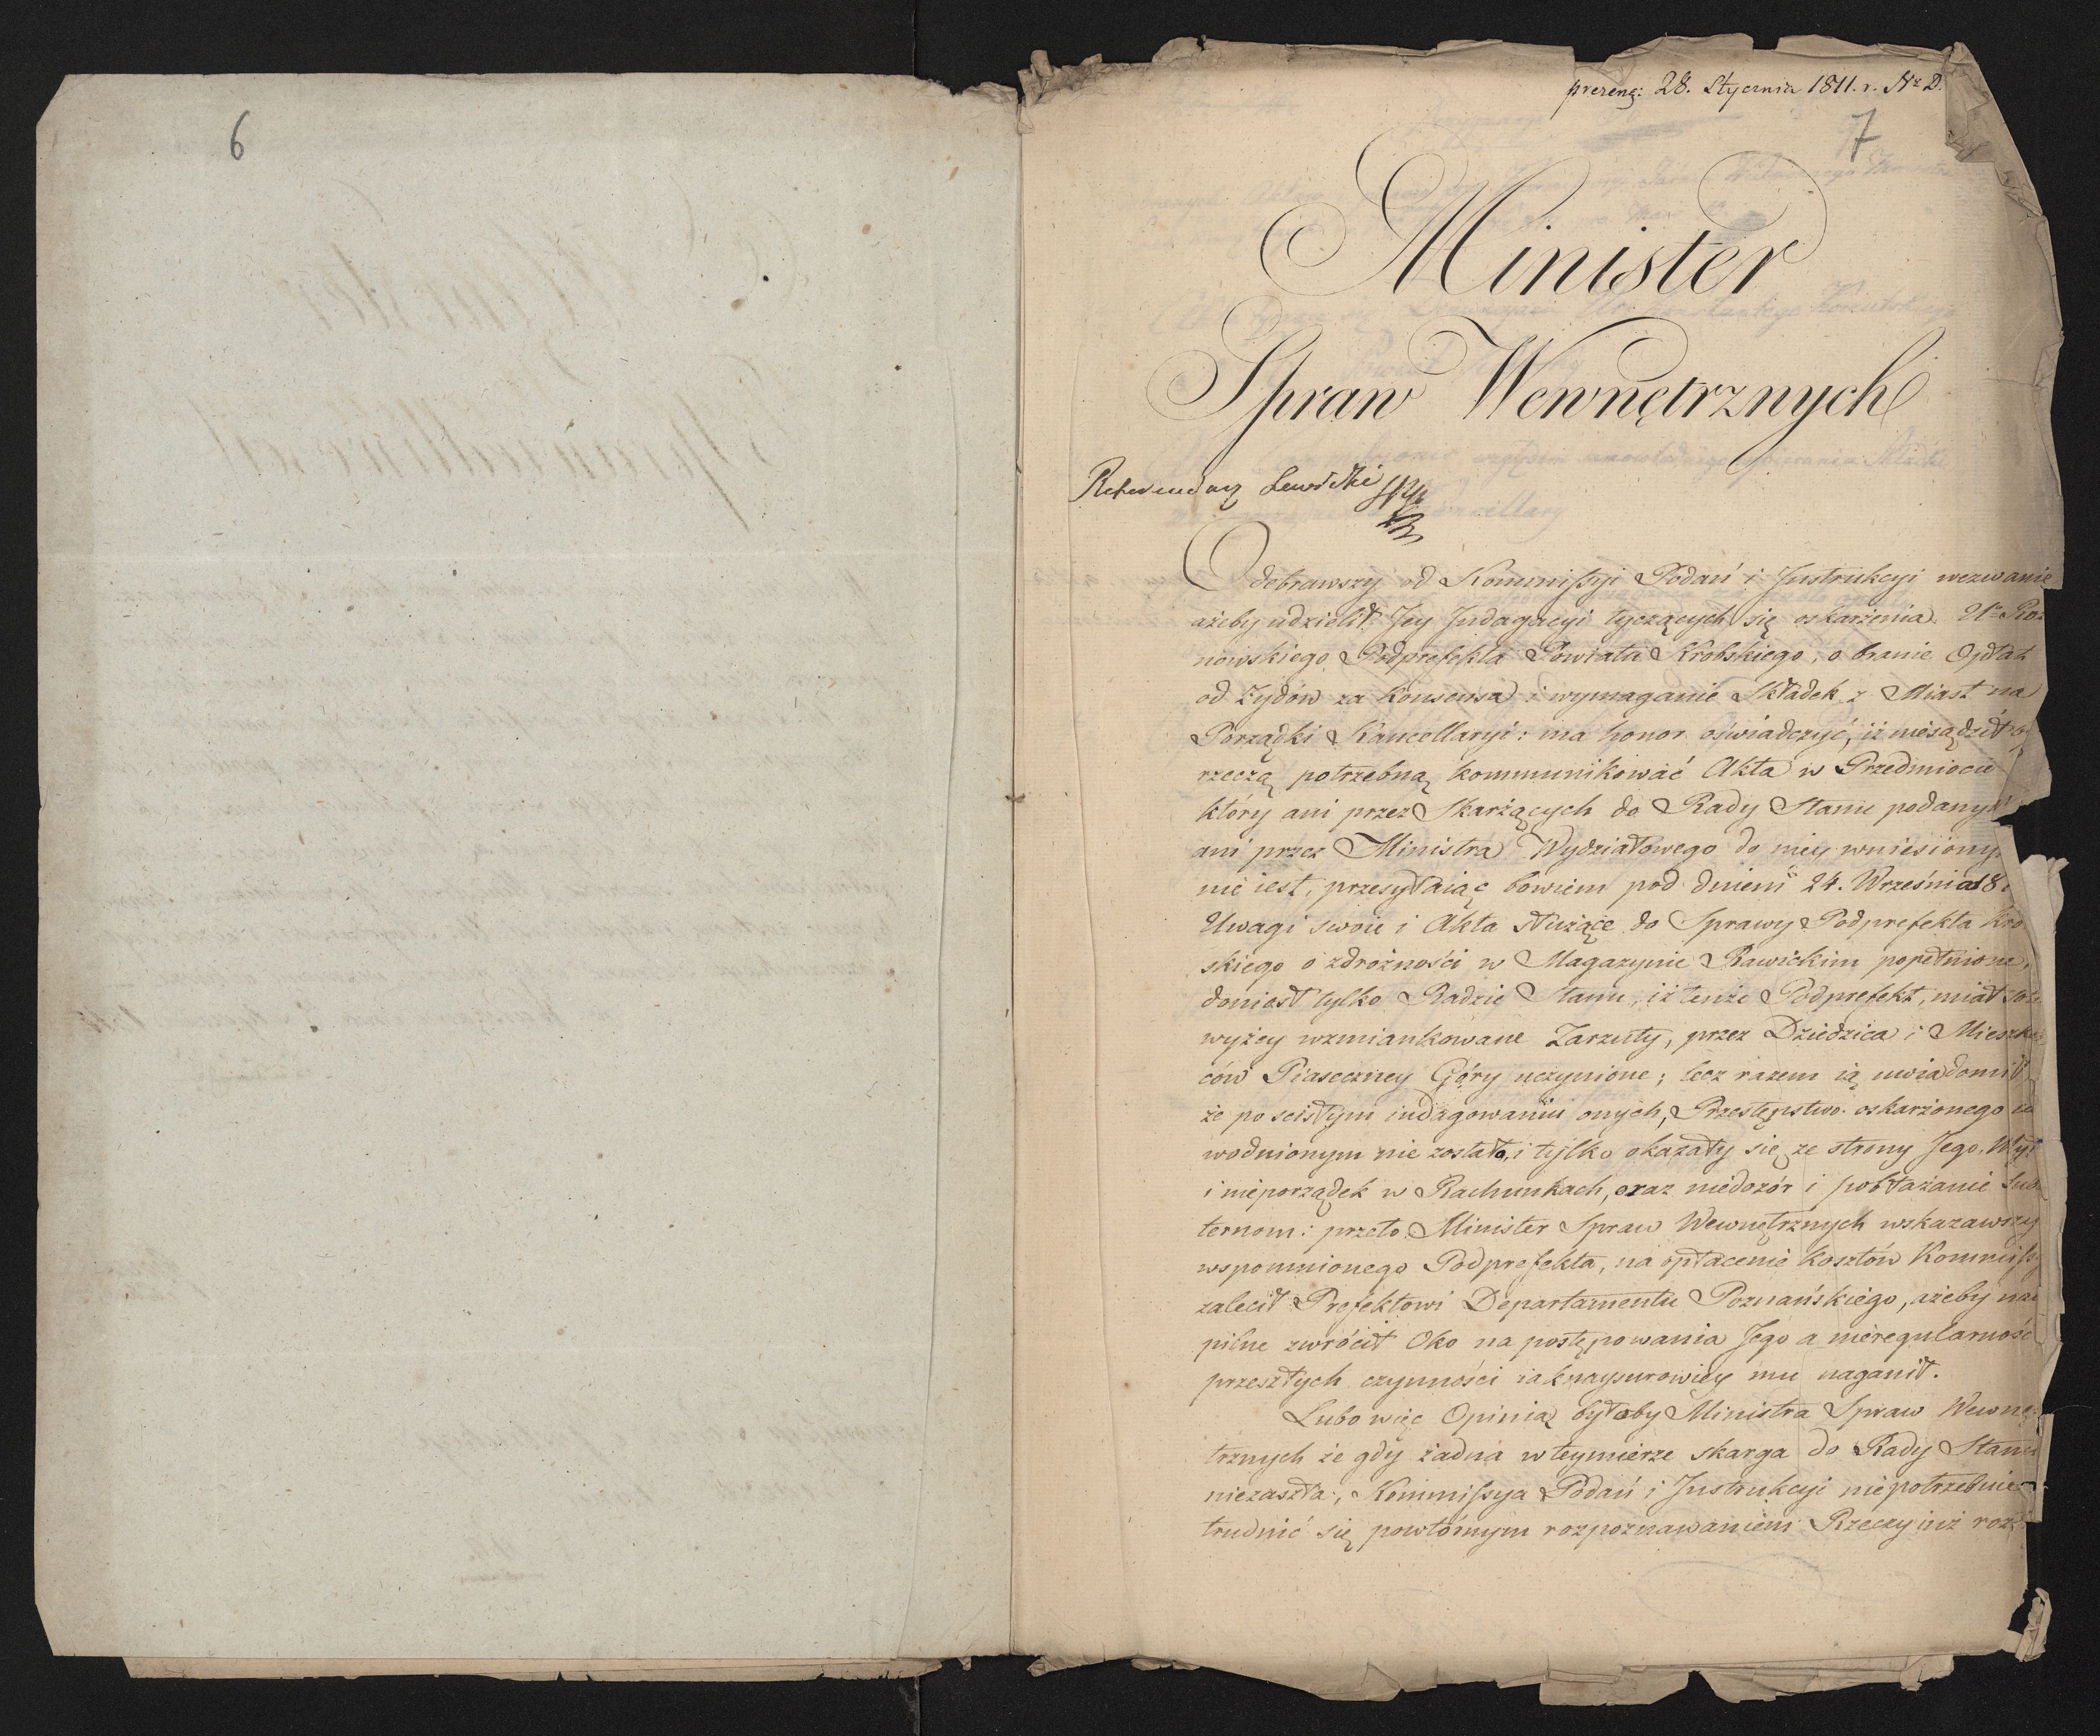 6
28. Stycznia 1811. r. Nr D.
7
Minister
Spraw Wewnętrznych
Referendarz Lewiński
Odebrawszy od Kommissyi Podań i Instrukcyi wezwanie
ażeby udzielił Jey Indagacyi tyczących się oskarżenia Ur
nowskiego Podprefekta Powiatu Krobskiego, o branie Opłat
od Żydów za Konsensa i wymaganie Składek z Miast na
Porządki Kancellaryi: ma honor oświadczyć, iż niesądził
rzeczą potrzebną kommunikować Akta w Przedmiocie
który ani przez Skarżących do Rady Stanu podany
ani przez Ministra Wydziałowego do niey wniesiony
nie iest, przesyłaiąc bowiem pod dniem 24. Września 18
Uwagi swoie i Akta służące do Sprawy Podprefekta Kro
skiego o zdrożności w Magazynie Rawickim popełnione,
doniosł tylko Radzie Stanu, iż tenże Podprefekt, miał
wyżey wzmiankowane Zarzuty, przez Dziedzica i Mieszkań
ców Piaseczney Góry uczynione; lecz razem ią uwiadomił
że po scisłym indagowaniu onych, Przestępstwo oskarżonego u
wodnionym nie zostało, i tylko okazały się ze strony Jego,
i nieporządek w Rachunkach, oraz niedozór i pobłażanie Sub
ternom: przeto Minister Spraw Wewnętrznych wskazawszy
wspomnionego Podprefekta, na opłacenie kosztów Kommiss
zalecił Prefektowi Departamentu Poznańskiego, ażeby nai
pilne zwrócił Oko na postępowania Jego a nieregularność
przeszłych czynności iaknaysurowiey mu naganił.
Lubo więc Opinią byłoby Ministra Spraw Wewnę
trznych że gdy żadna w teymierze skarga do Rady Stanu
niezaszła, Kommissya Podań i Instrukcyi niepotrzebnie
trudnić się powtórnym rozpoznawaniem Rzeczy iuż roz